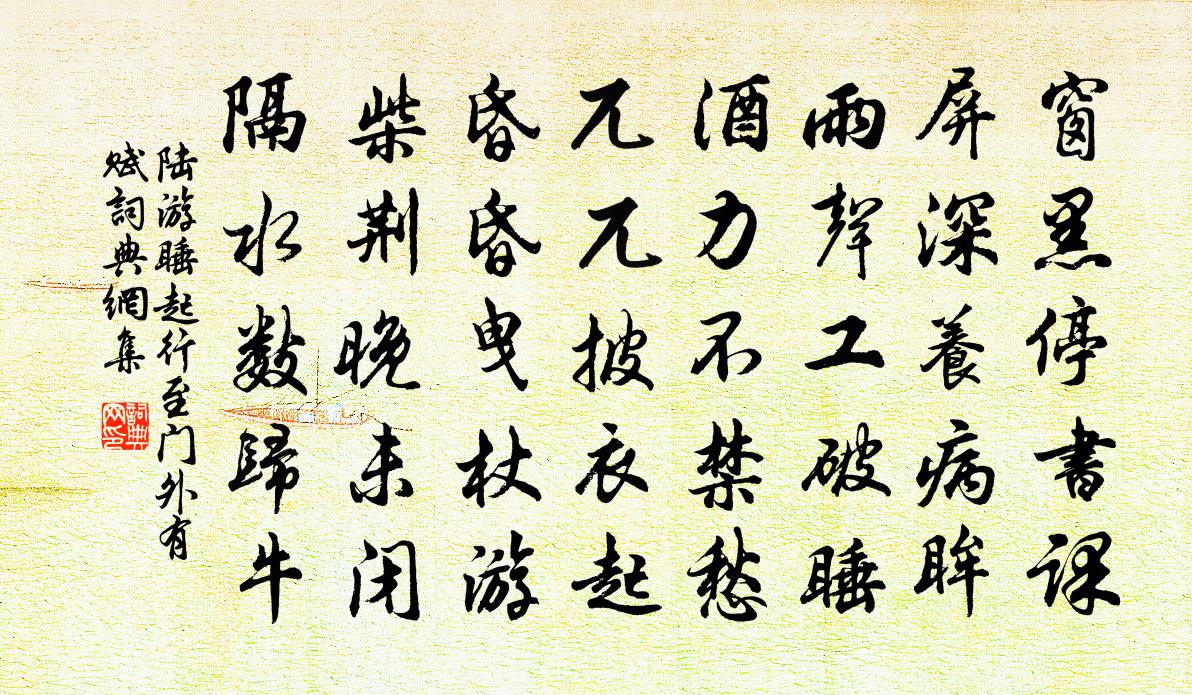 窗黑停書課
屏深養病眸
雨聲工破睡
酒力不禁愁
兀兀披衣起
昏昏曳杖游
柴荆晚未闭
隔水數歸牛
陆游睡起行至门外有
赋詞典網集
詞典
网印